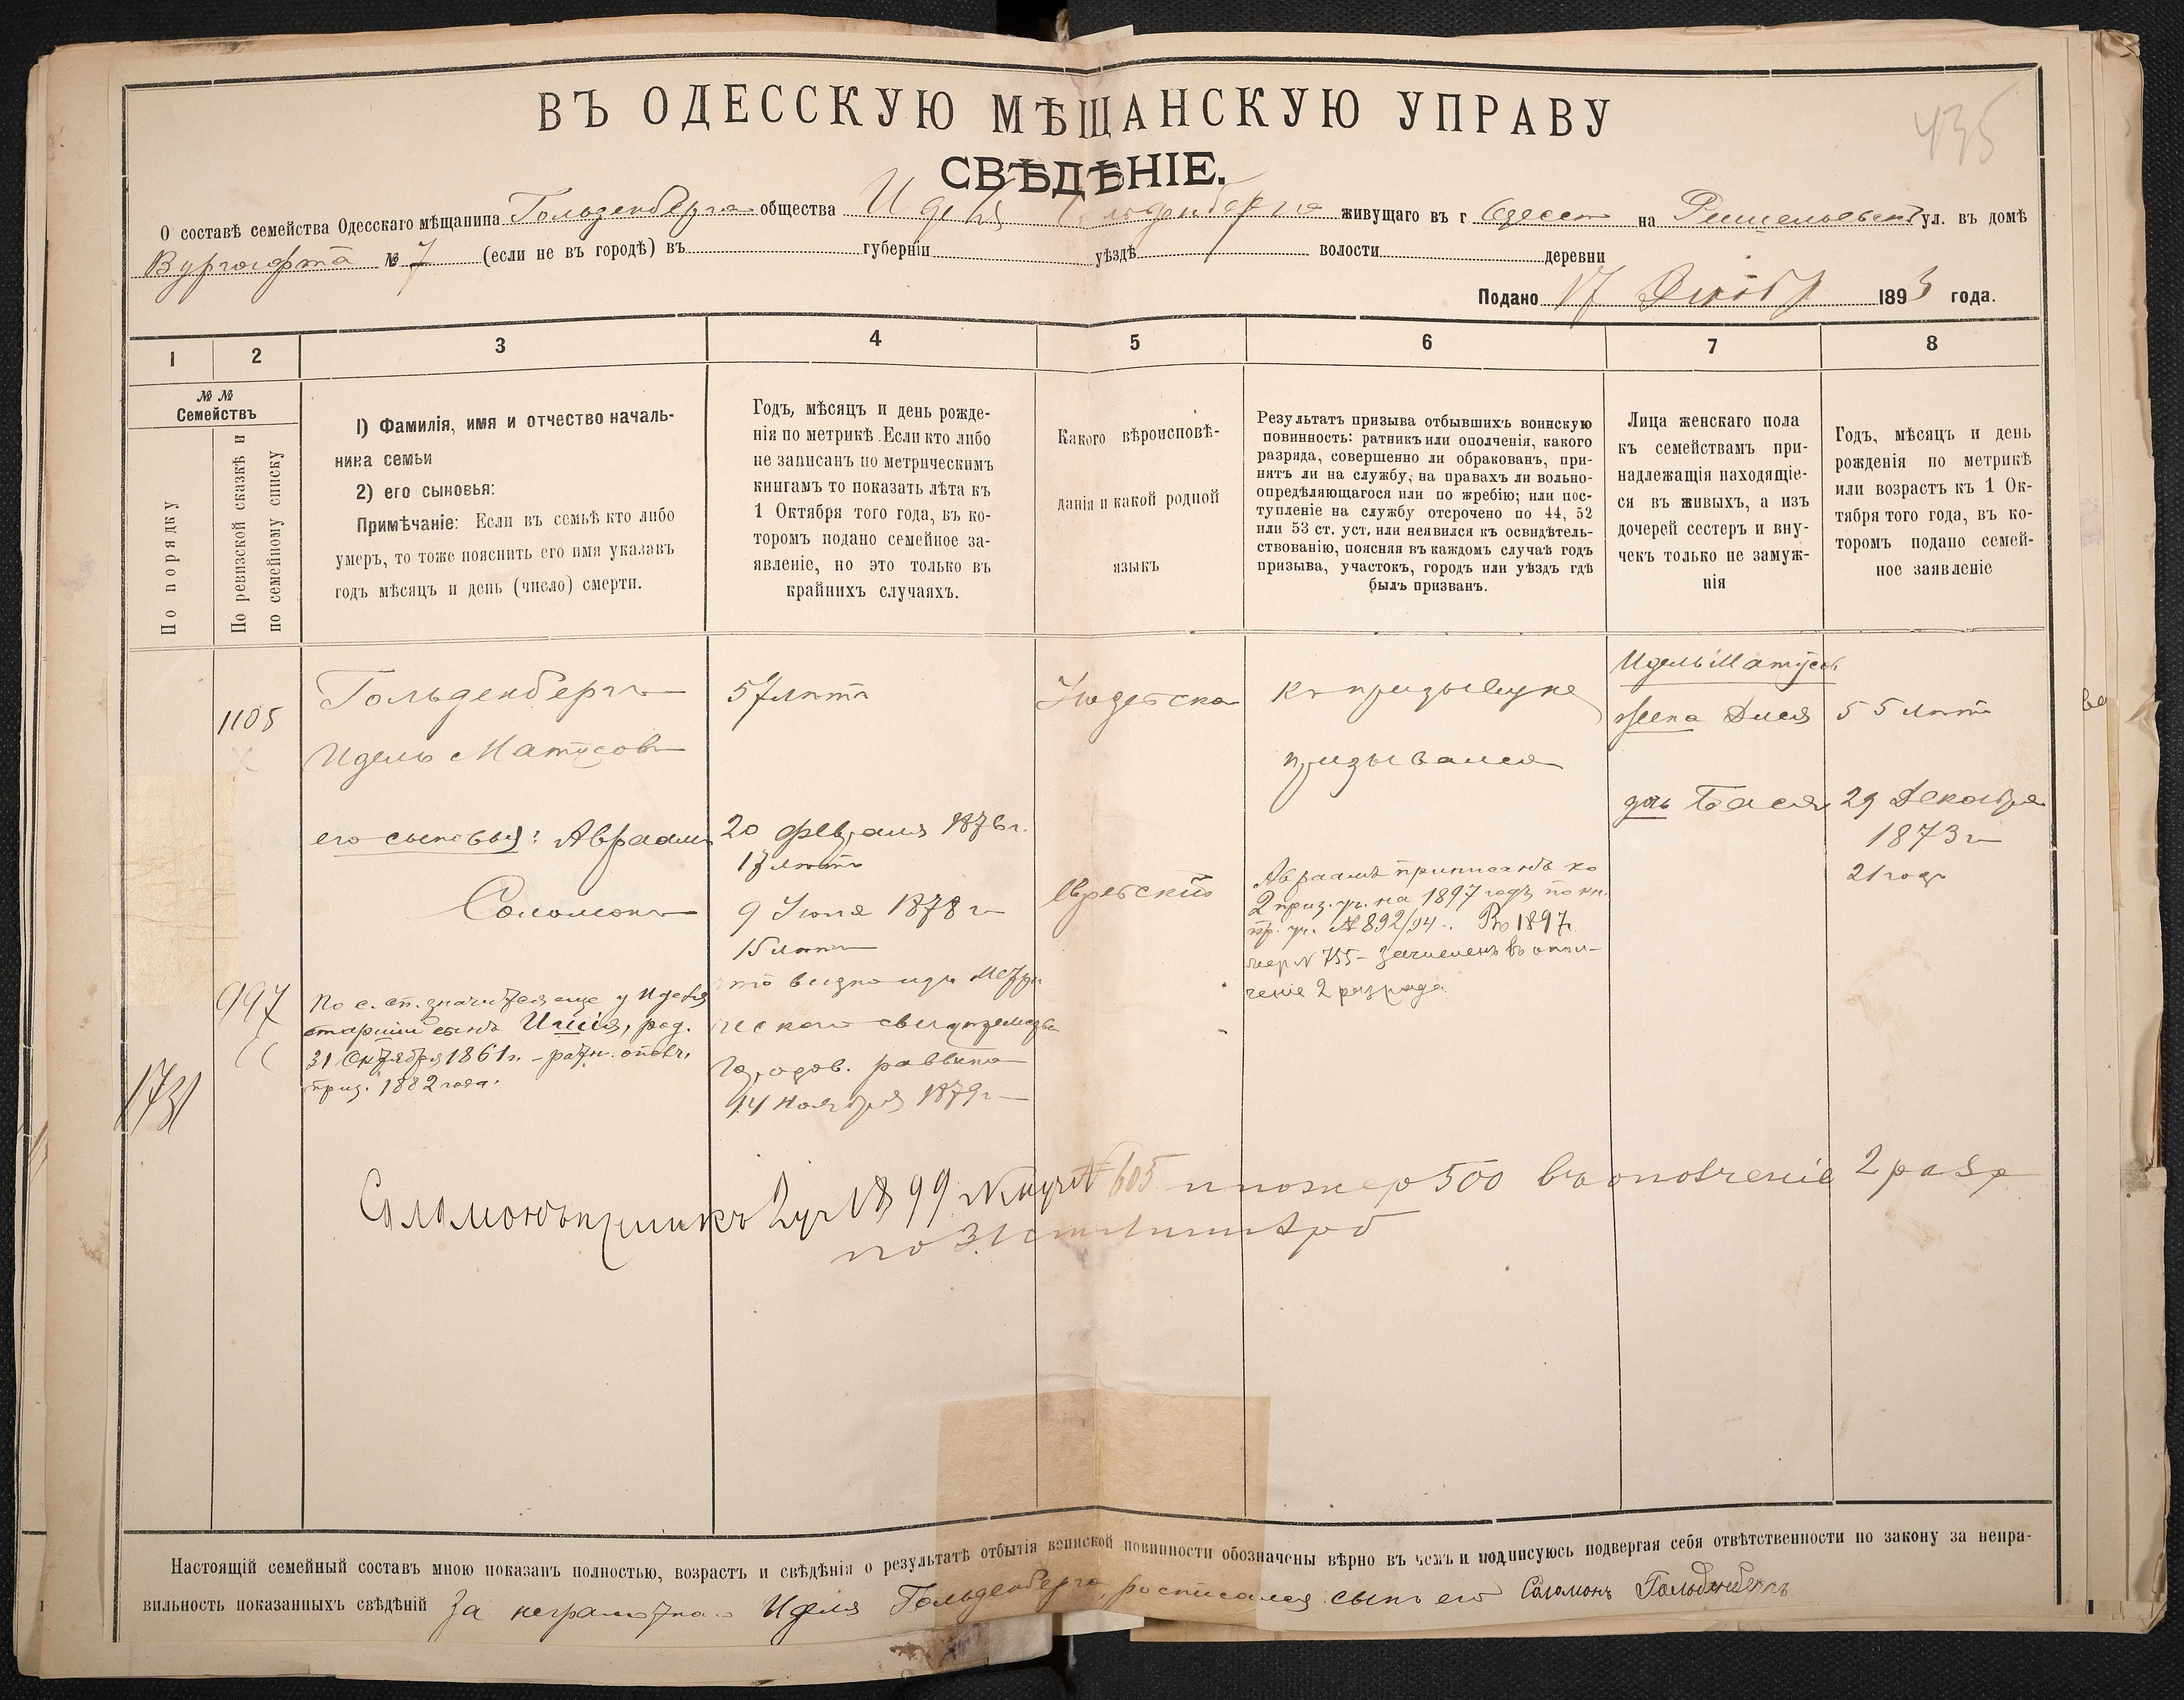 435
ВЪ ОДЕССКУЮ МѢЩАНСКУЮ УПРАВУ
СВѢДѢНІЕ.
О составѣ семейства Одесскаго мѣщанина Гольденберга общества Иделя Гольденберга живущаго въ г Одессѣ на Ришельевск ул. въ домѣ
№ 7 (если не въ городѣ) въ губерніи уѣздѣ волости деревни
Подано 17 1893 года.
1 2 3 4 5 6 7 8
№ №
Семействъ
По порядку
По ревизской сказкѣ и
по семейному списку
1) Фамилія, имя и отчество началь-
ника семьи
2) его сыновья:
Примѣчаніе: Если въ семьѣ кто либо
умеръ, то тоже пояснить его имя указавъ
годъ мѣсяцъ и день (число) смерти.
Годъ, мѣсяцъ и день рожде-
нія по метрикѣ. Если кто либо
не записанъ по метрическимъ
книгамъ то показать лѣта къ
1 Октября того года, въ ко-
торомъ подано семейное за-
явленіе, но это только въ
крайнихъ случаяхъ.
Какого вѣроисповѣ-
данія и какой родной
языкъ
Результатъ призыва отбывшихъ воинскую
повинность: ратникъ или ополченія, какого
разряда, совершенно ли обракованъ, при-
нятъ ли на службу, на правахъ ли вольно-
опредѣляющагося или по жребію; или пос-
тупленіе на службу отсрочено по 44, 52
или 53 ст. уст, или неявился къ освидѣтель-
ствованію, поясняя въ каждомъ случаѣ годъ
призыва, участокъ, городъ или уѣздъ гдѣ
былъ призванъ.
Лица женскаго пола
къ семействамъ при-
надлежащія находящіе-
ся въ живыхъ, а изъ
дочерей сестеръ и вну-
чекъ только не замуж-
нія
Годъ, мѣсяцъ и день
рожденія по метрикѣ
или возрастъ къ 1 Ок-
тября того года, въ ко-
торомъ подано семей-
ное заявленіе
1105
997
1731
Гольденбергъ
Идель Матусовъ
его сыновья: Авраамъ
Соломонъ
По с. сп. значится еще у Иделя
старшій сынъ Ицсія, род.
31 Октября 1861 г. - ратн. ополч.
приз. 1882 года.
57 лѣтъ
20 февраля 1876 г.
17 лѣтъ
9 Іюня 1878 г
15 лѣтъ
что видно изъ Метри
ческаго свидѣтельства
городов. раввина
14 Ноября 1879 г
Іюдейска
Еврейскій
къ призыву не
призывался
Авраамъ приписанъ ко
2 приз. уч. на 1897 годъ по кн.
пр. уч. № 892/94. Въ 1897
жер № 755 - зачисленъ въ опол-
ченіе 2 разряда
Идель Матусов
жена Двося
дочь Бася
55 лѣтъ
29 Декабря
1873 г
21 годъ
Соломонъ припис къ 2 уч 1899 № 605 и по жер 500 въ ополченіе 2 разр
Настоящій семейный составъ мною показанъ полностью, возрастъ и свѣдѣнія о результатѣ отбытія воинской повинности обозначены вѣрно въ чемъ и подписуюсь подвергая себя отвѣтственности по закону за непра-
вильность показанныхъ свѣдѣній За неграмотнаго Иделя Гольденберга, росписался сынъ его Соломонъ Гольденбергъ